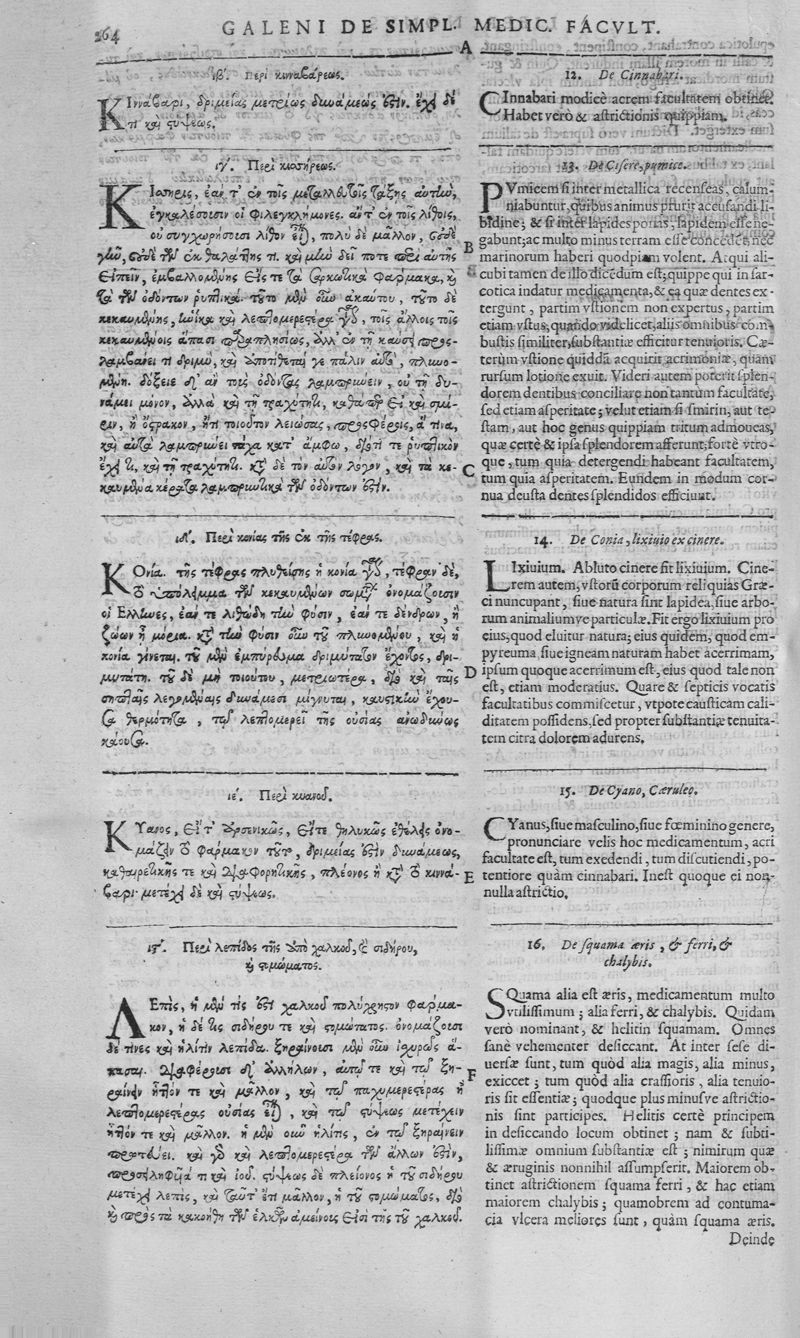 264
GALENI DE SIMPL. MEDIC. FACVLT.
A
ιβʹ. Περὶ κινναβάρεως.
ΚΙννάβαρι, δριμείας μετρίως δυνάμεώς ἐστιν. ἔχει δέ
τι καὶ στύψεως.
ιγʹ. Περὶ κισσήρεως.
ΚΙσσηρις, ἐὰν τ' ἐν τοῖς μεταλλευτοῖς τάξης αὐτὴν,
ἐγκαλέσουσιν οἱ φιλεγκλήμονες. ἄν τ' ἐν τοῖς λίθοις,
οὐ συγχωρήσουσι λίθον εἶναι, πολὺ δὲ μᾶλλον, οὐδὲ
γῆν, οὐδὲ τῶν ἐκ θαλάττης τι. καὶ μὴν δεῖ ποτε περὶ αὐτῆς
εἰπεῖν, ἐμβαλλομένης εἴς τε τὰ σαρκωτικὰ φάρμακα, καὶ
τὰ τῶν ὀδόντων ῥυπτικά. τοῦτο μὲν οὖν ἀκαύτου, τοῦτο δὲ
κεκαυμένης, ἡνίκα καὶ λεπτομερεστέρα γίνεται, τοῖς ἄλλοις τοῖς
κεκαυμένοις ἅπασι παραπλησίως, ἀλλ' ἐν τῇ καύσει προσ-
λαμβάνει τι δριμὺ, καὶ ἀποτίθεταί γε πάλιν αὐτὸ, πλυνο-
μένη. δόξειε δ' ἂν τοὺς ὀδόντας λαμπρύνειν, οὐ τῇ δυ-
νάμει μόνον, ἀλλὰ καὶ τῇ τραχύτητι, καθάπερ εἰ καὶ σμύ-
ριν, ἢ ὄστρακον, ἤ τι τοιοῦτον λειώσας, προσφέροις, ἅ τινα,
καὶ αὐτὰ λαμπρύνει τάχα κατ' ἄμφω, διότι τε ῥυπτικὸν
ἔχει τι, καὶ τῇ τραχύτητι. κατὰ δὲ τὸν αὐτὸν λόγον, καὶ τὰ κε-
καυμένα κέρατα λαμπρυντικὰ τῶν ὀδόντων ἐστίν.
ιδʹ. Περὶ κονίας τῆς ἐκ τῆς τέφρας.
ΚΟνία. τῆς τέφρας πλυθείσης ἡ κονία γίνεται, τέφραν δὲ,
τὸ ὑπόλειμμα τῶν κεκαυμένων σωμάτων ὀνομάζουσιν
οἱ Ἕλληνες, ἐάν τε λιθώδη τὴν φύσιν, ἐάν τε δένδρων, ἢ
ζώων ᾖ μόρια. κατὰ τὴν φύσιν οὖν τοῦ πλυνομένου, καὶ ἡ
κονία γίνεται. τοῦ μὲν ἐμπύρευμα δριμύτατον ἔχοντος, δρι-
μυτάτη. τοῦ δὲ μὴ τοιούτου, μετριωτέρα, διὸ καὶ ταῖς
σηπταῖς λεγομέναις δυνάμεσι μίγνυται, καυστικὴν ἔχου-
σα θερμότητα, τῷ λεπτομερεῖ τῆς οὐσίας ἀνωδύνως
καίουσα.
ιεʹ. Περὶ κυανοῦ.
ΚΥανος, εἴτ' ἀρσενικῶς, εἴτε θηλυκῶς ἐθέλεις ὀνο-
μάζειν τὸ φάρμακον τοῦτο, δριμείας ἐστὶν δυνάμεως,
καθαιρετικῆς τε καὶ διαφορητικῆς, πλέονος ἢ κατὰ τὸ κιννά-
βαρι· μετέχει δὲ καὶ στύψεως.
ιϛʹ. Περὶ λεπίδος τῆς ἀπὸ χαλκοῦ, καὶ σιδήρου,
καὶ στομώματος.
ΛΕπὶς, ἡ μέν τίς ἐστι χαλκοῦ πολύχρηστον φάρμα-
κον, ἡ δέ τις σιδήρου τε καὶ στομώματος. ὀνομάζουσι
δέ τινες καὶ ἡλῖτιν λεπίδα. ξηραίνουσι μὲν οὖν ἰσχυρῶς ἅ-
πασαι. διαφέρουσι δ' ἀλλήλων, αὐτῷ τε καὶ τῷ ξη-
ραίνειν ἧττόν τε καὶ μᾶλλον, καὶ τῷ παχυμερεστέρας ἢ
λεπτομερεστέρας οὐσίας εἶναι, καὶ τῷ στύψεως μετέχειν
ἧττόν τε καὶ μᾶλλον. ἡ μὲν οὖν ἡλῖτις, ἐν τῷ ξηραίνειν
πρωτεύει. καὶ γὰρ καὶ λεπτομερεστέρα τῶν ἄλλων ἐστὶν,
προσειληφυῖά τι καὶ ἰοῦ. στύψεως δὲ πλείονος ἡ τοῦ σιδήρου
μετέχει λεπὶς, καὶ ταύτ' ἔτι μᾶλλον, ἡ τοῦ στομώματος, διὸ
καὶ πρὸς τὰ κακοήθη τῶν ἑλκῶν ἀμείνους εἰσὶ τῆς τοῦ χαλκοῦ.
B
C
D
E
F
12. De Cinnabari.
CInnabari modicè acrem facultatem obtinet.
Habet verò & aſtrictionis quippiam.
13. De Ciſere, pumice.
PVmicem ſi inter metallica recenſeas, calum-
niabuntur, quibus animus prurit accuſandi li-
bidine; & ſi inter lapides ponas, lapidem eſſe ne-
gabunt; ac multo minus terram eſſe concedent, nec
marinorum haberi quodpiam volent. Atqui ali-
cubi tamen de illo dicendum eſt; quippe qui in ſar-
cotica indatur medicamenta, & ea quæ dentes ex-
tergunt, partim vſtionem non expertus, partim
etiam vſtus, quando videlicet, aliis omnibus com-
buſtis ſimiliter, ſubſtantiæ efficitur tenuioris. Cæ-
terùm vſtione quiddã acquirit acrimoniæ, quam
rurſum lotione exuit. Videri autem poterit ſplen-
dorem dentibus conciliare non tantum facultate,
ſed etiam aſperitate; velut etiam ſi ſmirin, aut te-
ſtam, aut hoc genus quippiam tritum admoueas,
quæ certè & ipſa ſplendorem afferunt; fortè vtro-
que, tum quia detergendi habeant facultatem,
tum quia aſperitatem. Eundem in modum cor-
nua deuſta dentes ſplendidos efficiunt.
14. De Conia, lixiuio ex cinere.
LIxiuium. Abluto cinere fit lixiuium. Cine-
rem autem, vſtorũ corporum reliquias Græ-
ci nuncupant, ſiue natura ſint lapidea, ſiue arbo-
rum animaliumve particulæ. Fit ergo lixiuium pro
eius, quod eluitur natura; eius quidem, quod em-
pyreuma, ſiue igneam naturam habet acerrimam,
ipſum quoque acerrimum eſt, eius quod tale non
eſt, etiam moderatius. Quare & ſepticis vocatis
facultatibus commiſcetur, vtpote cauſticam cali-
ditatem poſſidens, ſed propter ſubſtantiæ tenuita-
tem citra dolorem adurens.
15. De Cyano, Cæruleo.
CYanus, ſiue maſculino, ſiue fœminino genere,
pronunciare velis hoc medicamentum, acri
facultate eſt, tum exedendi, tum diſcutiendi, po-
tentiore quàm cinnabari. Ineſt quoque ei non-
nulla aſtrictio.
16. De ſquama æris, & ferri, &
chalybis.
SQuama alia eſt æris, medicamentum multo
vtiliſſimum; alia ferri, & chalybis. Quidam
verò nominant, & helitin ſquamam. Omnes
ſanè vehementer deſiccant. At inter ſeſe di-
uerſæ ſunt, tum quòd alia magis, alia minus,
exiccet; tum quòd alia craſſioris, alia tenuio-
ris ſit eſſentiæ; quodque plus minuſve aſtrictio-
nis ſint participes. Helitis certè principem
in deſiccando locum obtinet; nam & ſubti-
liſſimæ omnium ſubſtantiæ eſt; nimirum quæ
& æruginis nonnihil aſſumpſerit. Maiorem ob-
tinet aſtrictionem ſquama ferri, & hac etiam
maiorem chalybis; quamobrem ad contuma-
cia vlcera meliores ſunt, quàm ſquama æris.
Deinde